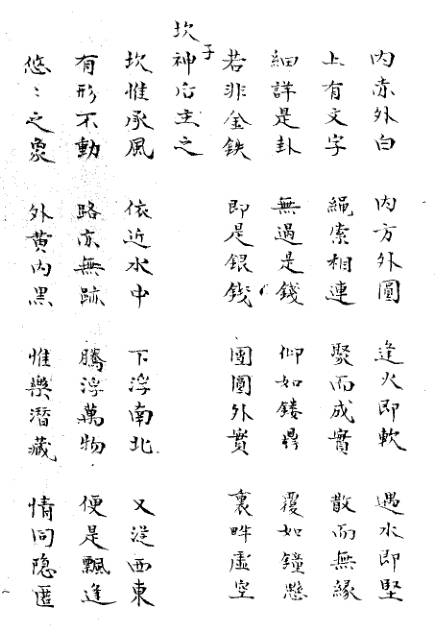 内赤外白 内方外圓 逢火即軟 遇水即堅
上有文字 繩索相連 聚而成實 散而無緣
細詳是卦 無過是錢 仰如鏤 覆如鐘懸
若非金鉄 即是銀錢 團圓外實 裏畔虛空
坎神后主之
子
坎惟承風 依近水中 下浮南北 又從西東
有形不動 路亦無跡 騰浮萬物 便是飄逢
悠〻之象 外黃内黑 惟樂潛藏 情同隐匿